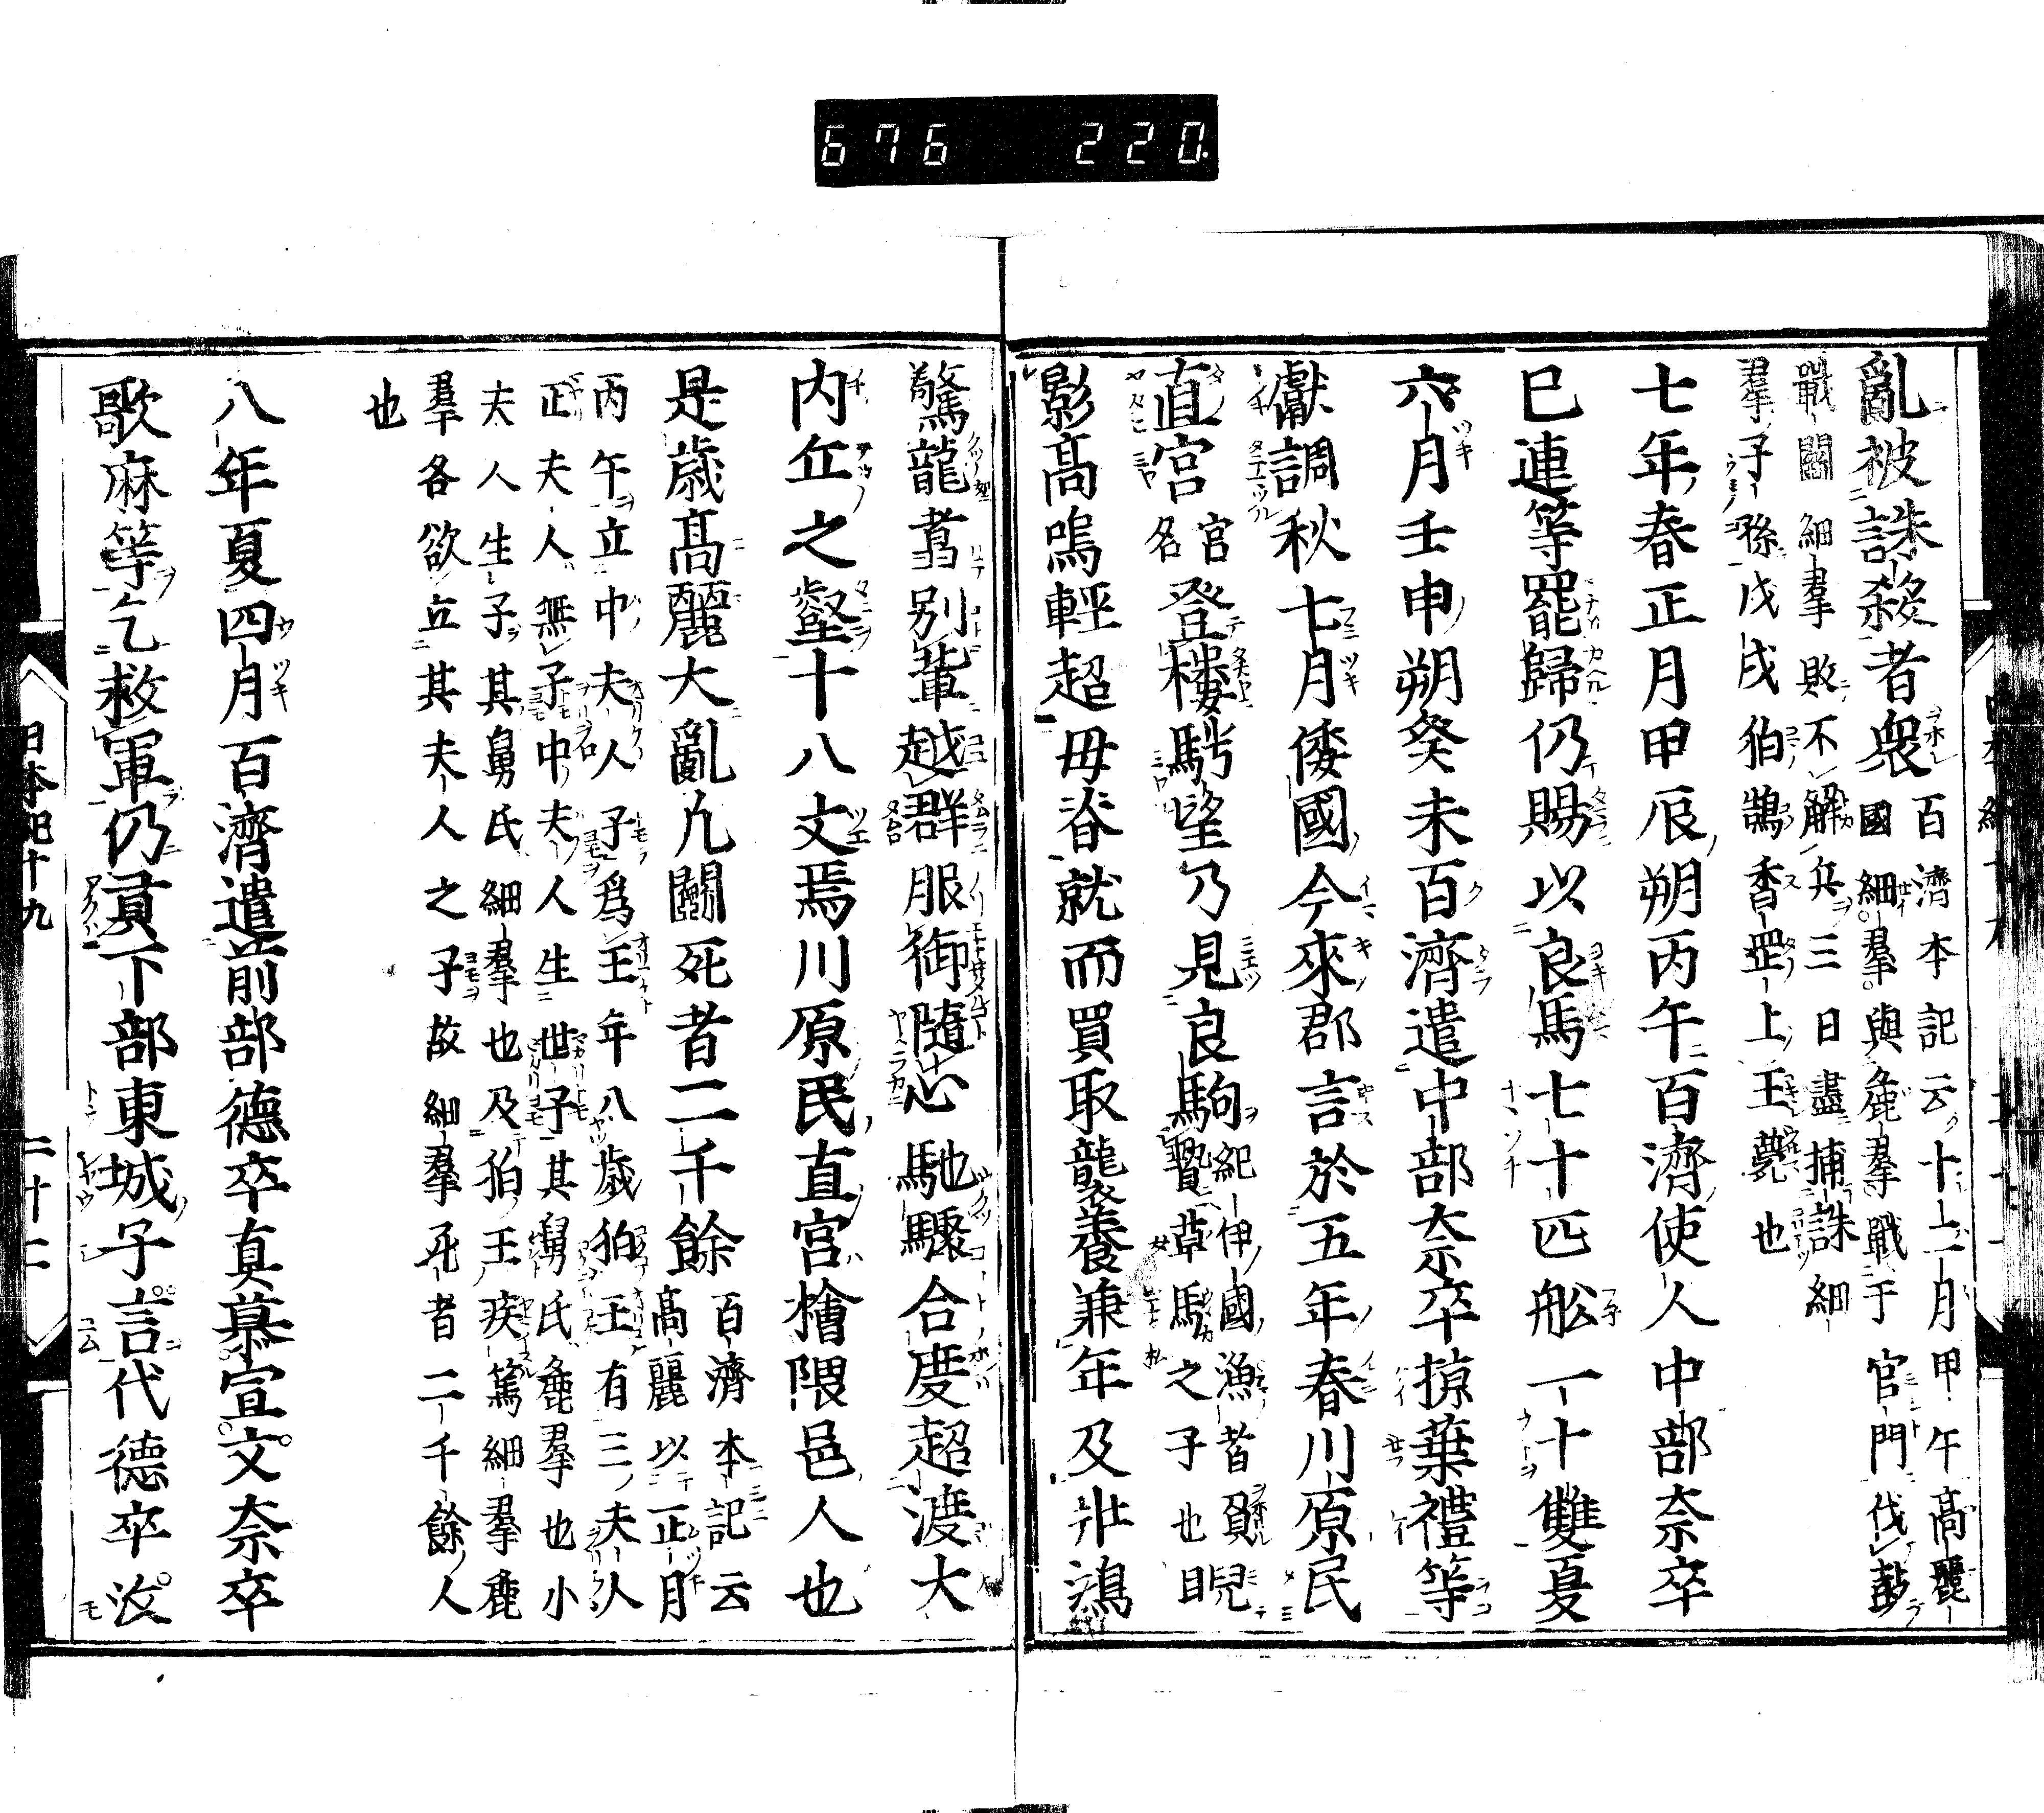 676 220
亂被誅殺者衆百濟本記云十二月甲午高麗
國細羣與麁羣戰于宮門伐鼓
戰鬭細羣敗不解兵三日盡捕誅細
羣子孫戊戌狛鵠香罡上王薨也
七年春正月甲辰朔丙午百濟使人中部奈卒
巳連等罷歸仍賜以良馬七十匹舩一十雙夏
六月壬申朔癸未百濟遣中部奈卒掠葉禮等
獻調秋七月倭國今來郡言於五年春川原民
直宮宮名登樓騁望乃見良駒紀伊國漁者負兒
草馬之子也目
影高鳴輕超母脊就而買取襲養兼年及壯鴻
驚龍翥別輩越群服御隨心馳驟合度超渡大
内丘之壑十八丈焉川原民直宮檜隈邑人也
是歳高麗大亂凢鬭死者二千餘百濟本記云
高麗以正月
丙午立中夫人子爲王年八歳狛王有三夫人
正夫人無子中夫人生世子其舅氏麁羣也小
夫人生子其舅氏細羣也及狛王疾篤細羣麁
羣各欲立其夫人之子故細羣死者二千餘人
也
八年夏四月百濟遣前部德卒真慕宣文奈卒
歌麻等乞救軍仍貢下部東城子言代德卒汶
日本紀十九 二十二